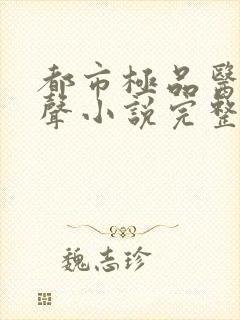 都市極品醫
聲小說完整
魏志珍